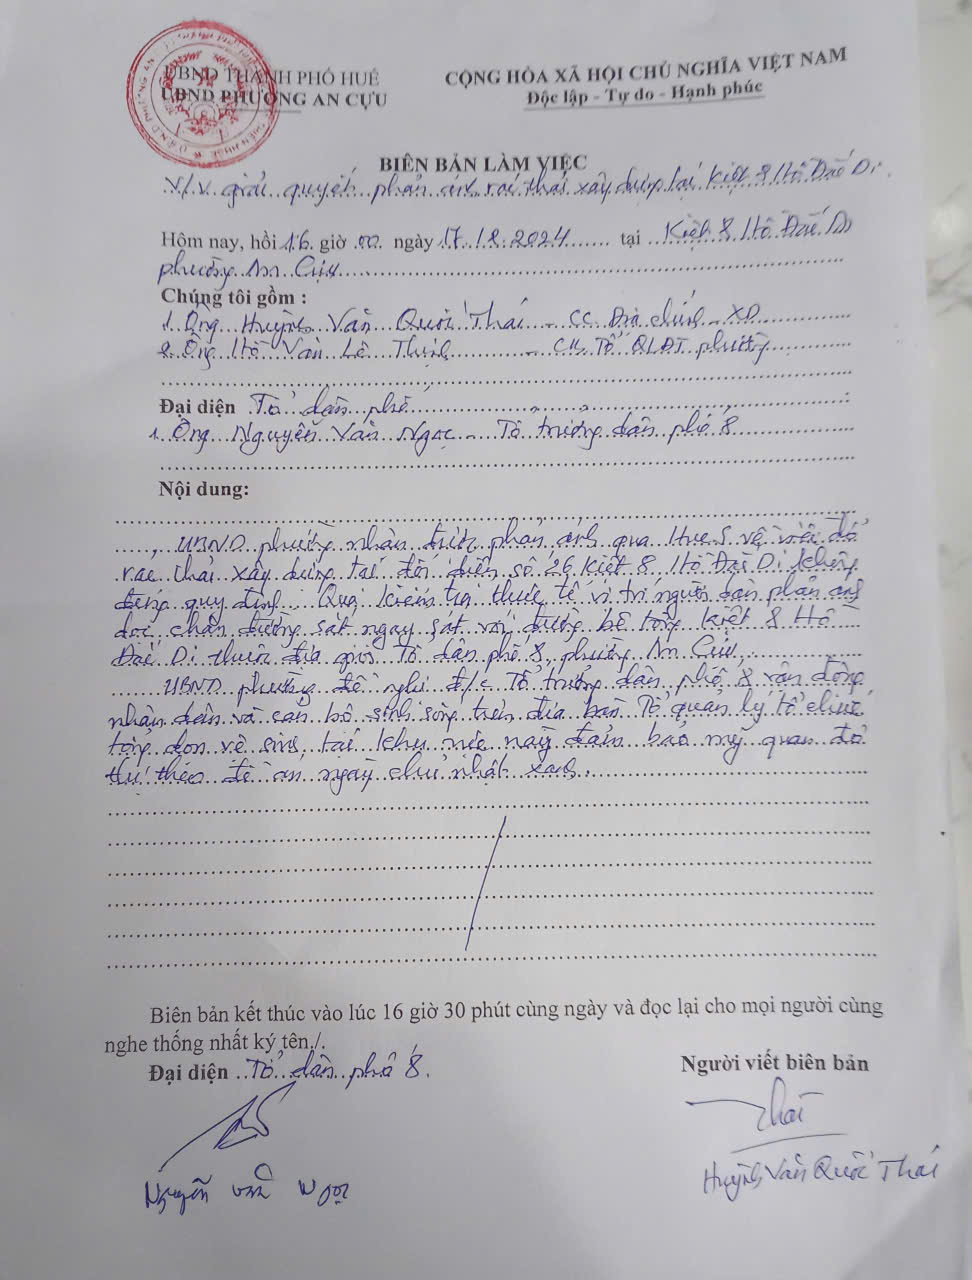 UBND THÀNH PHỐ HUẾ
UBND PHƯỜNG AN CỰU
CỘNG HÒA XÃ HỘI CHỦ NGHĨA VIỆT NAM
Độc lập - Tự do - Hạnh phúc
BIÊN BẢN LÀM VIỆC
V/v giải quyết phản ánh rác thải xây dựng tại Kiệt 8 Hồ Đắc Di
Hôm nay, hồi 16 giờ 00 ngày 17.12.2024 tại Kiệt 8 Hồ Đắc Di
phường An Cựu
Chúng tôi gồm :
1. Ông Huỳnh Văn Quốc Thái - CC Địa chính - XD
2. Ông Hồ Văn Lê Thịnh - Tổ QLĐT phường
Đại diện Tổ dân phố :
1. Ông Nguyễn Văn Ngọc - Tổ trưởng dân phố 8
Nội dung:
UBND phường nhận được phản ánh qua Hue S về việc đổ
rác thải xây dựng tại đối diện số 26 Kiệt 8 Hồ Đắc Di không
đúng quy định. Qua kiểm tra thực tế vị trí người dân phản ánh
dọc chân đường sắt ngay sát với đường bê tông kiệt 8 Hồ
Đắc Di thuộc địa giới Tổ dân phố 8, phường An Cựu.
UBND phường đề nghị đ/c Tổ trưởng dân phố 8 vận động
nhân dân và cán bộ sinh sống trên địa bàn Tổ quản lý tổ chức
tổng dọn vệ sinh tại khu vực này đảm bảo mỹ quan đô
thị theo đề án ngày chủ nhật xanh.
Biên bản kết thúc vào lúc 16 giờ 30 phút cùng ngày và đọc lại cho mọi người cùng
nghe thống nhất ký tên./.
Đại diện Tổ dân phố 8.
Người viết biên bản
Thái
Nguyễn Văn Ngọc
Huỳnh Văn Quốc Thái